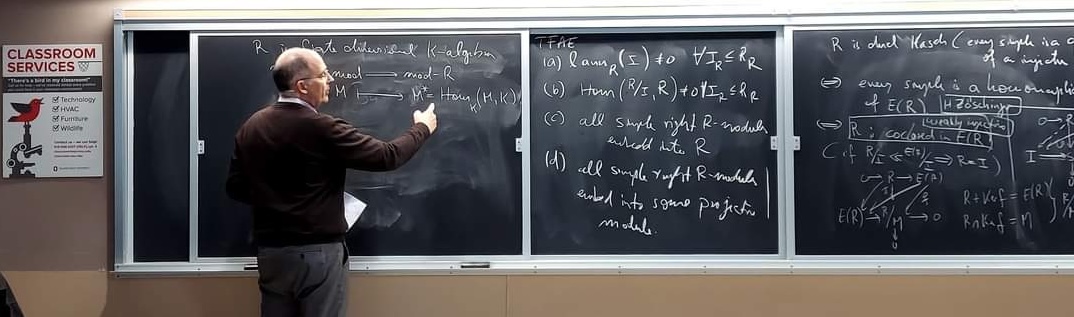 CLASSROOM
SERVICES
"There's a bird in my classroom!"
Technology
HVAC
Furniture
Wildlife
R is finite dimensional K-algebra
mod ⟶ mod-R
M ⟼ M* = Hom_K(M, K)
TFAE
(a) l.ann_R(I) ≠ 0 ∀ I_R ≤ R_R
(b) Hom(R/I, R) ≠ 0 ∀ I_R ≤ R_R
(c) all simple right R-modules
embedd into R
(d) all simple right R-modules
embed into some projective
module.
R is dual Kasch (every simple is a
of a injective
⇔ every simple is a homomorphic
of E(R) H Zöschinger
⇔ R is coclosed in E(R)
(if R/I ≪ E(R)/I ⇒ R = I)
0 → R → E(R)
E(R) → R/M → 0
R + Ker f = E(R)
R ∩ Ker f = M